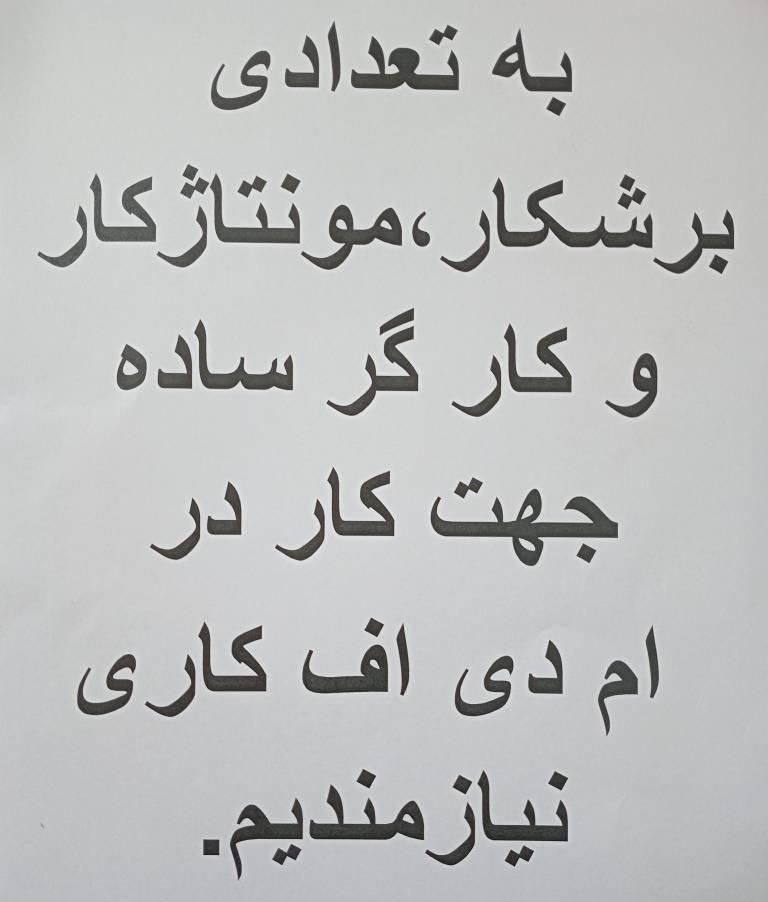 به تعدادی
برشکار،مونتاژکار
و کار گر ساده
جهت کار در
ام دی اف کاری
نیازمندیم.